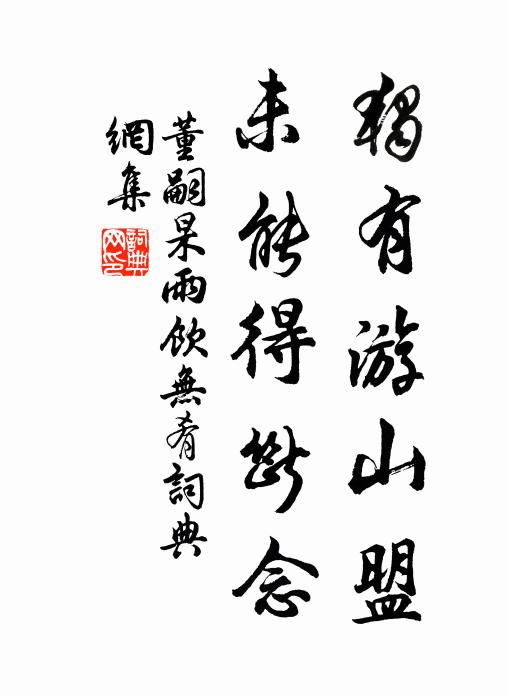 獨有游山盟
未能得斷念
董嗣杲雨飲無肴詞典
網集
詞典
網印